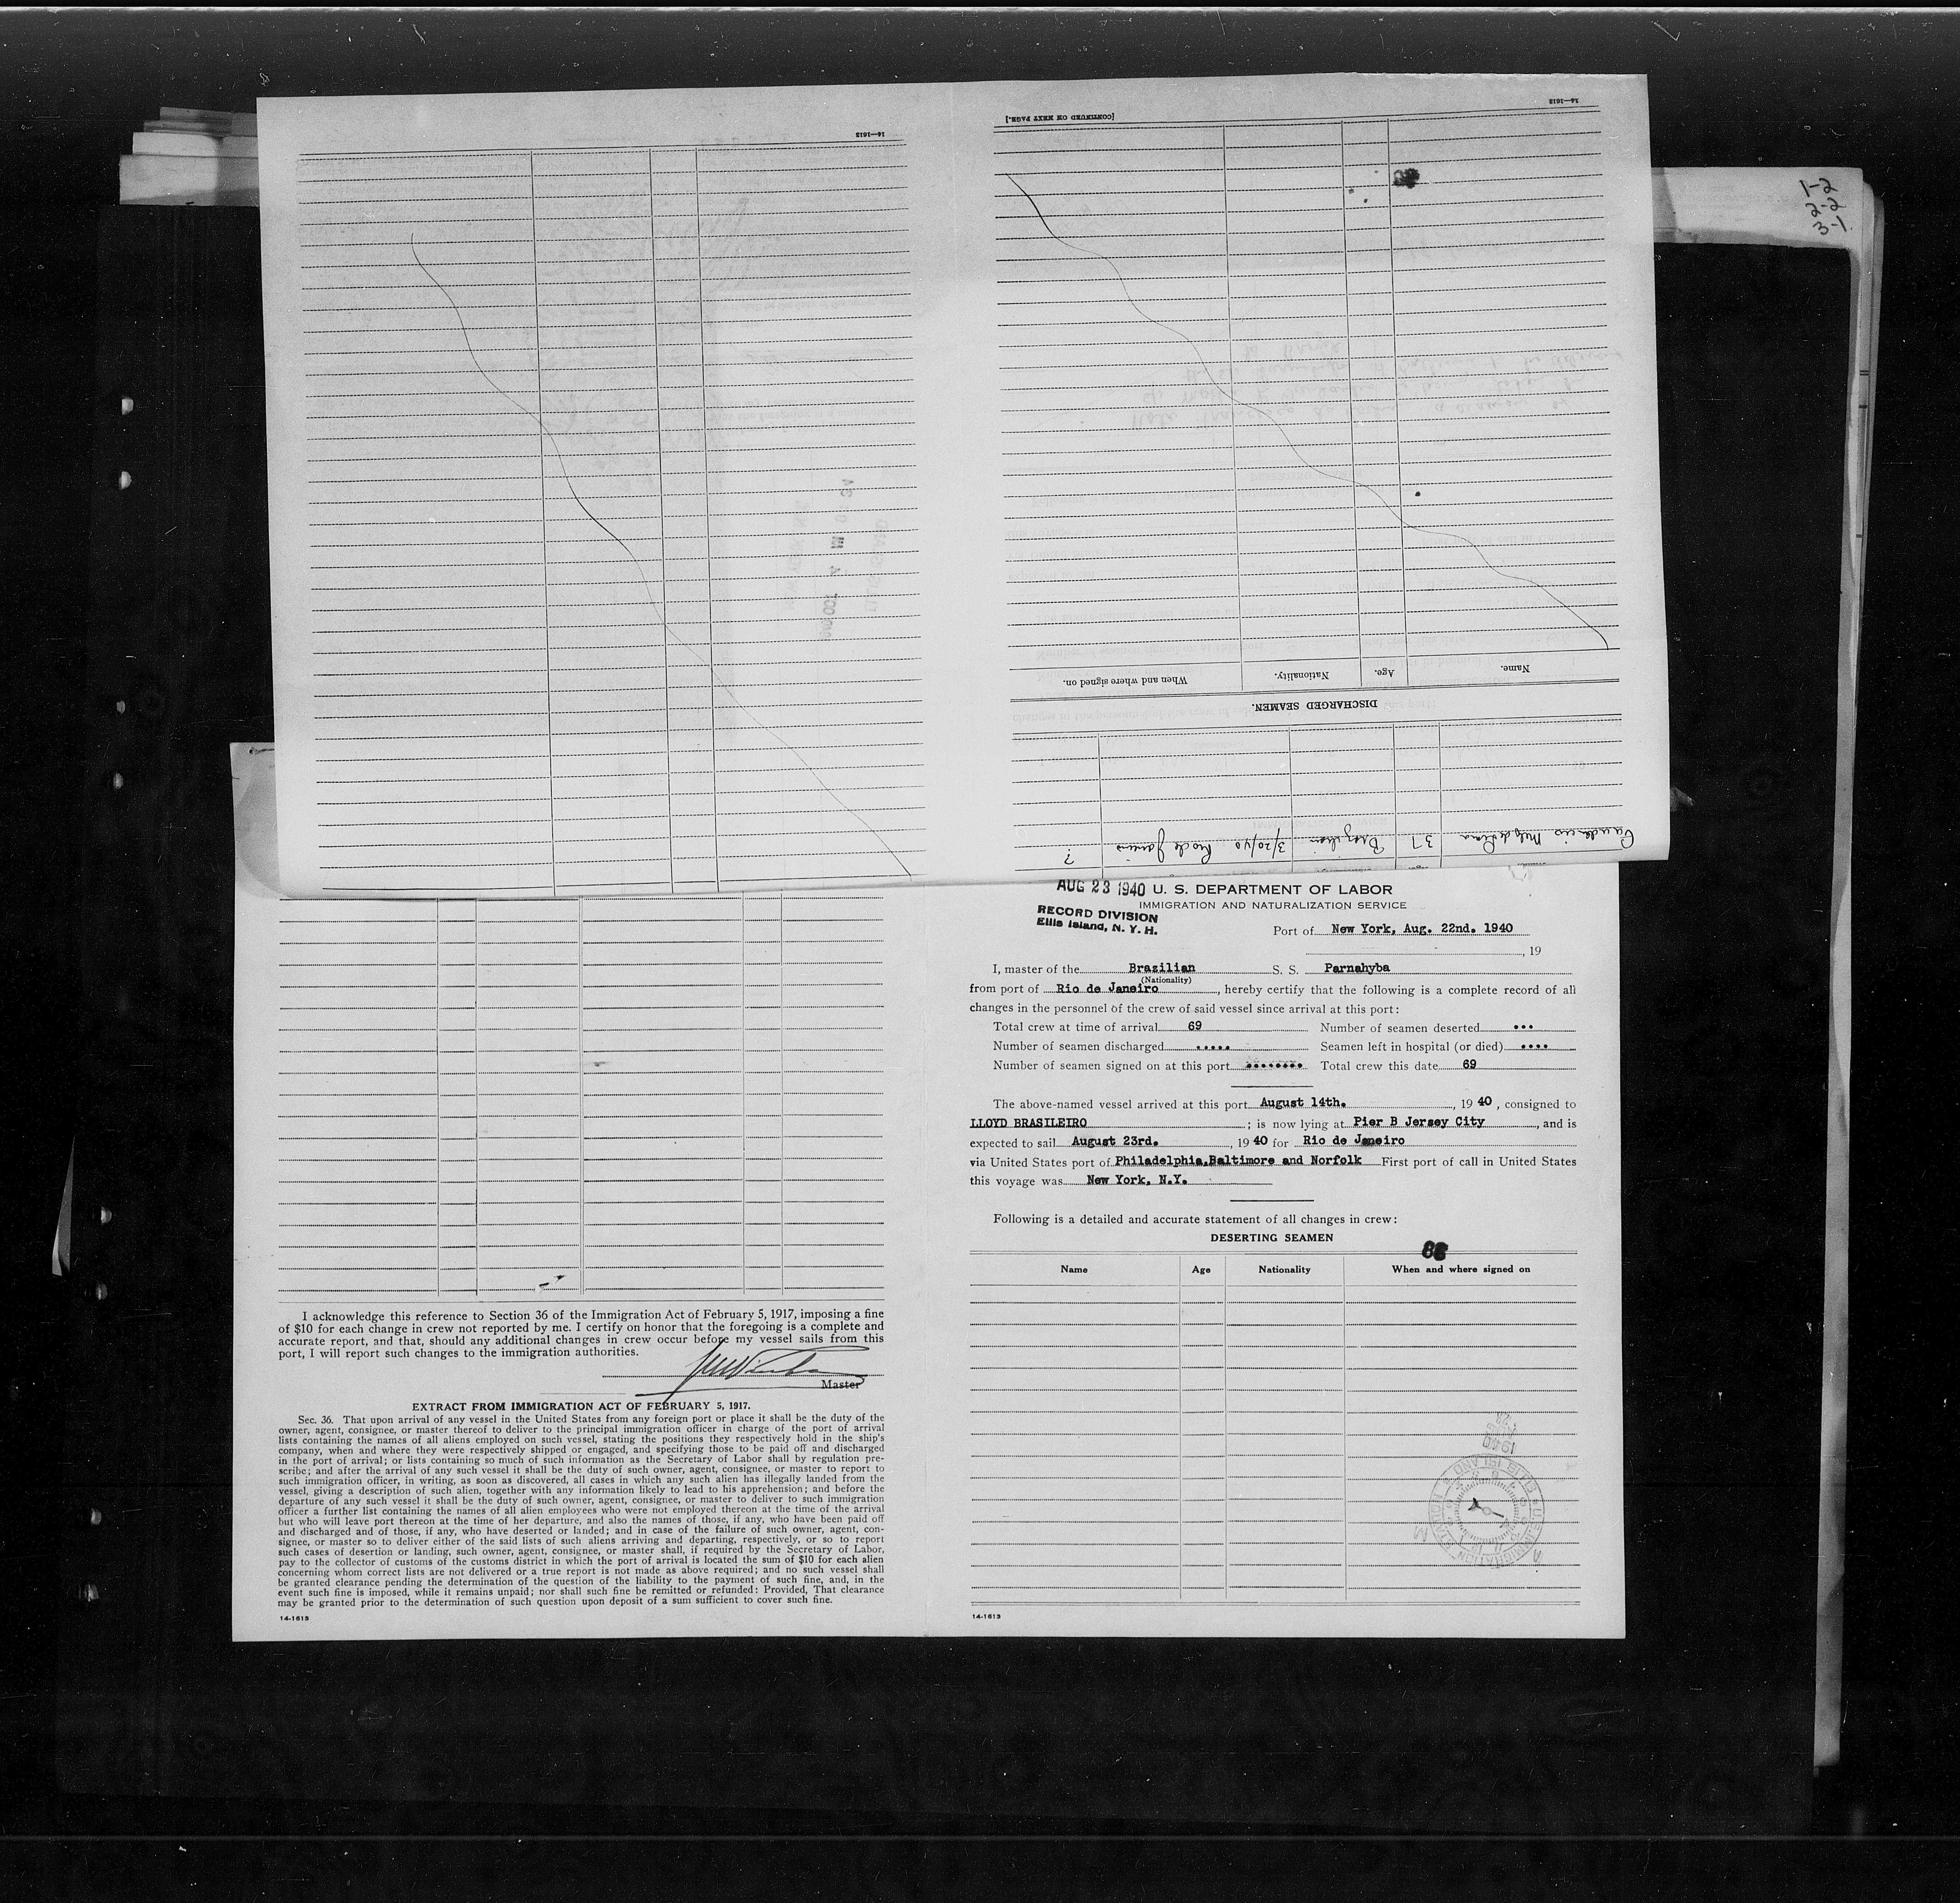 1-2
2-2
3-1
14—1613
[CONTINUED ON NEXT PAGE.]
14—1613
Name. Age. Nationality. When and where signed on.
DISCHARGED SEAMEN.
37 Brazilian 3/20/40 Rio de Janeiro ?
AUG 23 1940 U. S. DEPARTMENT OF LABOR
IMMIGRATION AND NATURALIZATION SERVICE
RECORD DIVISION
Ellis Island, N. Y. H.
Port of New York, Aug. 22nd. 1940
, 19
I, master of the Brazilian S. S. Parnahyba
(Nationality)
from port of Rio de Janeiro, hereby certify that the following is a complete record of all
changes in the personnel of the crew of said vessel since arrival at this port:
Total crew at time of arrival 69 Number of seamen deserted ...
Number of seamen discharged ..... Seamen left in hospital (or died) ....
Number of seamen signed on at this port ........ Total crew this date 69
The above-named vessel arrived at this port August 14th., 19 40, consigned to
LLOYD BRASILEIRO; is now lying at Pier B Jersey City, and is
expected to sail August 23rd., 19 40 for Rio de Janeiro
via United States port of Philadelphia,Baltimore and Norfolk First port of call in United States
this voyage was New York, N.Y.
Following is a detailed and accurate statement of all changes in crew:
DESERTING SEAMEN
Name Age Nationality When and where signed on
14-1613
I acknowledge this reference to Section 36 of the Immigration Act of February 5, 1917, imposing a fine
of $10 for each change in crew not reported by me. I certify on honor that the foregoing is a complete and
accurate report, and that, should any additional changes in crew occur before my vessel sails from this
port, I will report such changes to the immigration authorities.
Master
EXTRACT FROM IMMIGRATION ACT OF FEBRUARY 5, 1917.
Sec. 36. That upon arrival of any vessel in the United States from any foreign port or place it shall be the duty of the
owner, agent, consignee, or master thereof to deliver to the principal immigration officer in charge of the port of arrival
lists containing the names of all aliens employed on such vessel, stating the positions they respectively hold in the ship's
company, when and where they were respectively shipped or engaged, and specifying those to be paid off and discharged
in the port of arrival; or lists containing so much of such information as the Secretary of Labor shall by regulation pre-
scribe; and after the arrival of any such vessel it shall be the duty of such owner, agent, consignee, or master to report to
such immigration officer, in writing, as soon as discovered, all cases in which any such alien has illegally landed from the
vessel, giving a description of such alien, together with any information likely to lead to his apprehension; and before the
departure of any such vessel it shall be the duty of such owner, agent, consignee, or master to deliver to such immigration
officer a further list containing the names of all alien employees who were not employed thereon at the time of the arrival
but who will leave port thereon at the time of her departure, and also the names of those, if any, who have been paid off
and discharged and of those, if any, who have deserted or landed; and in case of the failure of such owner, agent, con-
signee, or master so to deliver either of the said lists of such aliens arriving and departing, respectively, or so to report
such cases of desertion or landing, such owner, agent, consignee, or master shall, if required by the Secretary of Labor,
pay to the collector of customs of the customs district in which the port of arrival is located the sum of $10 for each alien
concerning whom correct lists are not delivered or a true report is not made as above required; and no such vessel shall
be granted clearance pending the determination of the question of the liability to the payment of such fine, and, in the
event such fine is imposed, while it remains unpaid; nor shall such fine be remitted or refunded: Provided, That clearance
may be granted prior to the determination of such question upon deposit of a sum sufficient to cover such fine.
14-1613